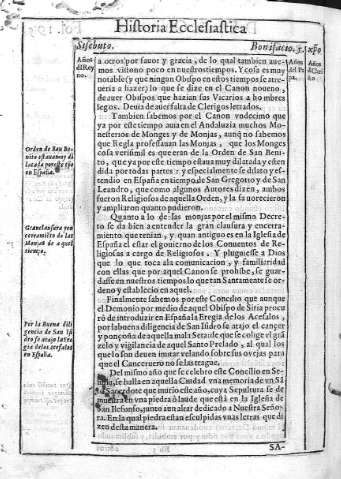 Historia Ecclesiastica
Sisebuto.
Bonifacio. 5. Xpo
Años
del Rey
no.
Años
del Pa
pa.
Años
a otros por fauor y gracia, de lo qual tambien aue-
mos vistono poco en nuestros tiempos. Y cosa es muy
notable (y que ningun Obispo en estos tiempos se atre-
ueria a hazer) lo que se dize en el Canon noueno,
de auer Obispos que hazian sus Vicarios a hombres
legos. Deuia de auer falta de Clerigos letrados.
Tambien sabemos por el Canon vndecimo que
ya por este tiempo auia en el Andaluzia muchos Mo-
nesterios de Monges y de Monjas, aunq̃ no sabemos
que Regla professauan las Monjas, que los Monges
cosa verisimil es que eran de la Orden de San Beni-
to, que ya por este tiempo estaua muy dilatada y esten
dida por todas partes: y especialmente se dilato y este-
ndio en España en tiempo de San Gregorio y de San
Leandro, que como algunos Autores dizen, ambos
fueron Religiosos de aquella Orden, y la fauorecieron
y ampliaron quanto pudieron.
Orden de San Be-
nito estaua muy di
latada por este tiẽpo
en España.
Quanto a lo de las monjas por el mismo Decre-
to se da bien a entender la gran clausura y encerra-
miento que tenian, y quan antiguo es en la Iglesia de
España el estar el gouierno de los Conuentos de Re-
ligiosas a cargo de Religiosos. Y pluguiesse a Dios
que lo que toca a la comunicacion, y familiaridad
con ellas que por aquel Canon se prohibe, se guar-
dasse en nuestros tiempos lo que tan Santamente se or-
deno y establecio en aquel.
Finalmente sabemos por este Concilio que aunque
el Demonio por medio de aquel Obispo de Siria procu
ro de introduzir en España la Eregia de los Acefalos,
por la buena diligencia de San Isidro se atajo el cancer
y ponçoña de aquella mala Seta: de que se colige el gran
zelo y vigilancia de aquel Santo Prelado, al qual los
que lo son deuen imitar velando sobre sus ovejas para
que el Canceruero no se las trague.
Por la Buena dili
gencia de San Isi-
dro se atajo la ere
gia de los acefalos
en España.
Del mismo año que se celebro este Concilio en Se-
uilla, se halla en aquella Ciudad vna memoria de un Sa
cerdote que murio este año, cuya Sepultura se de
muestra en vna piedra alaude que està en la Iglesia de
San Ilefonso, junto a un altar dedicado a Nuestra Seño-
ra. En la qual piedra estan esculpidas vnas letras que di
zen desta manera.
SA-